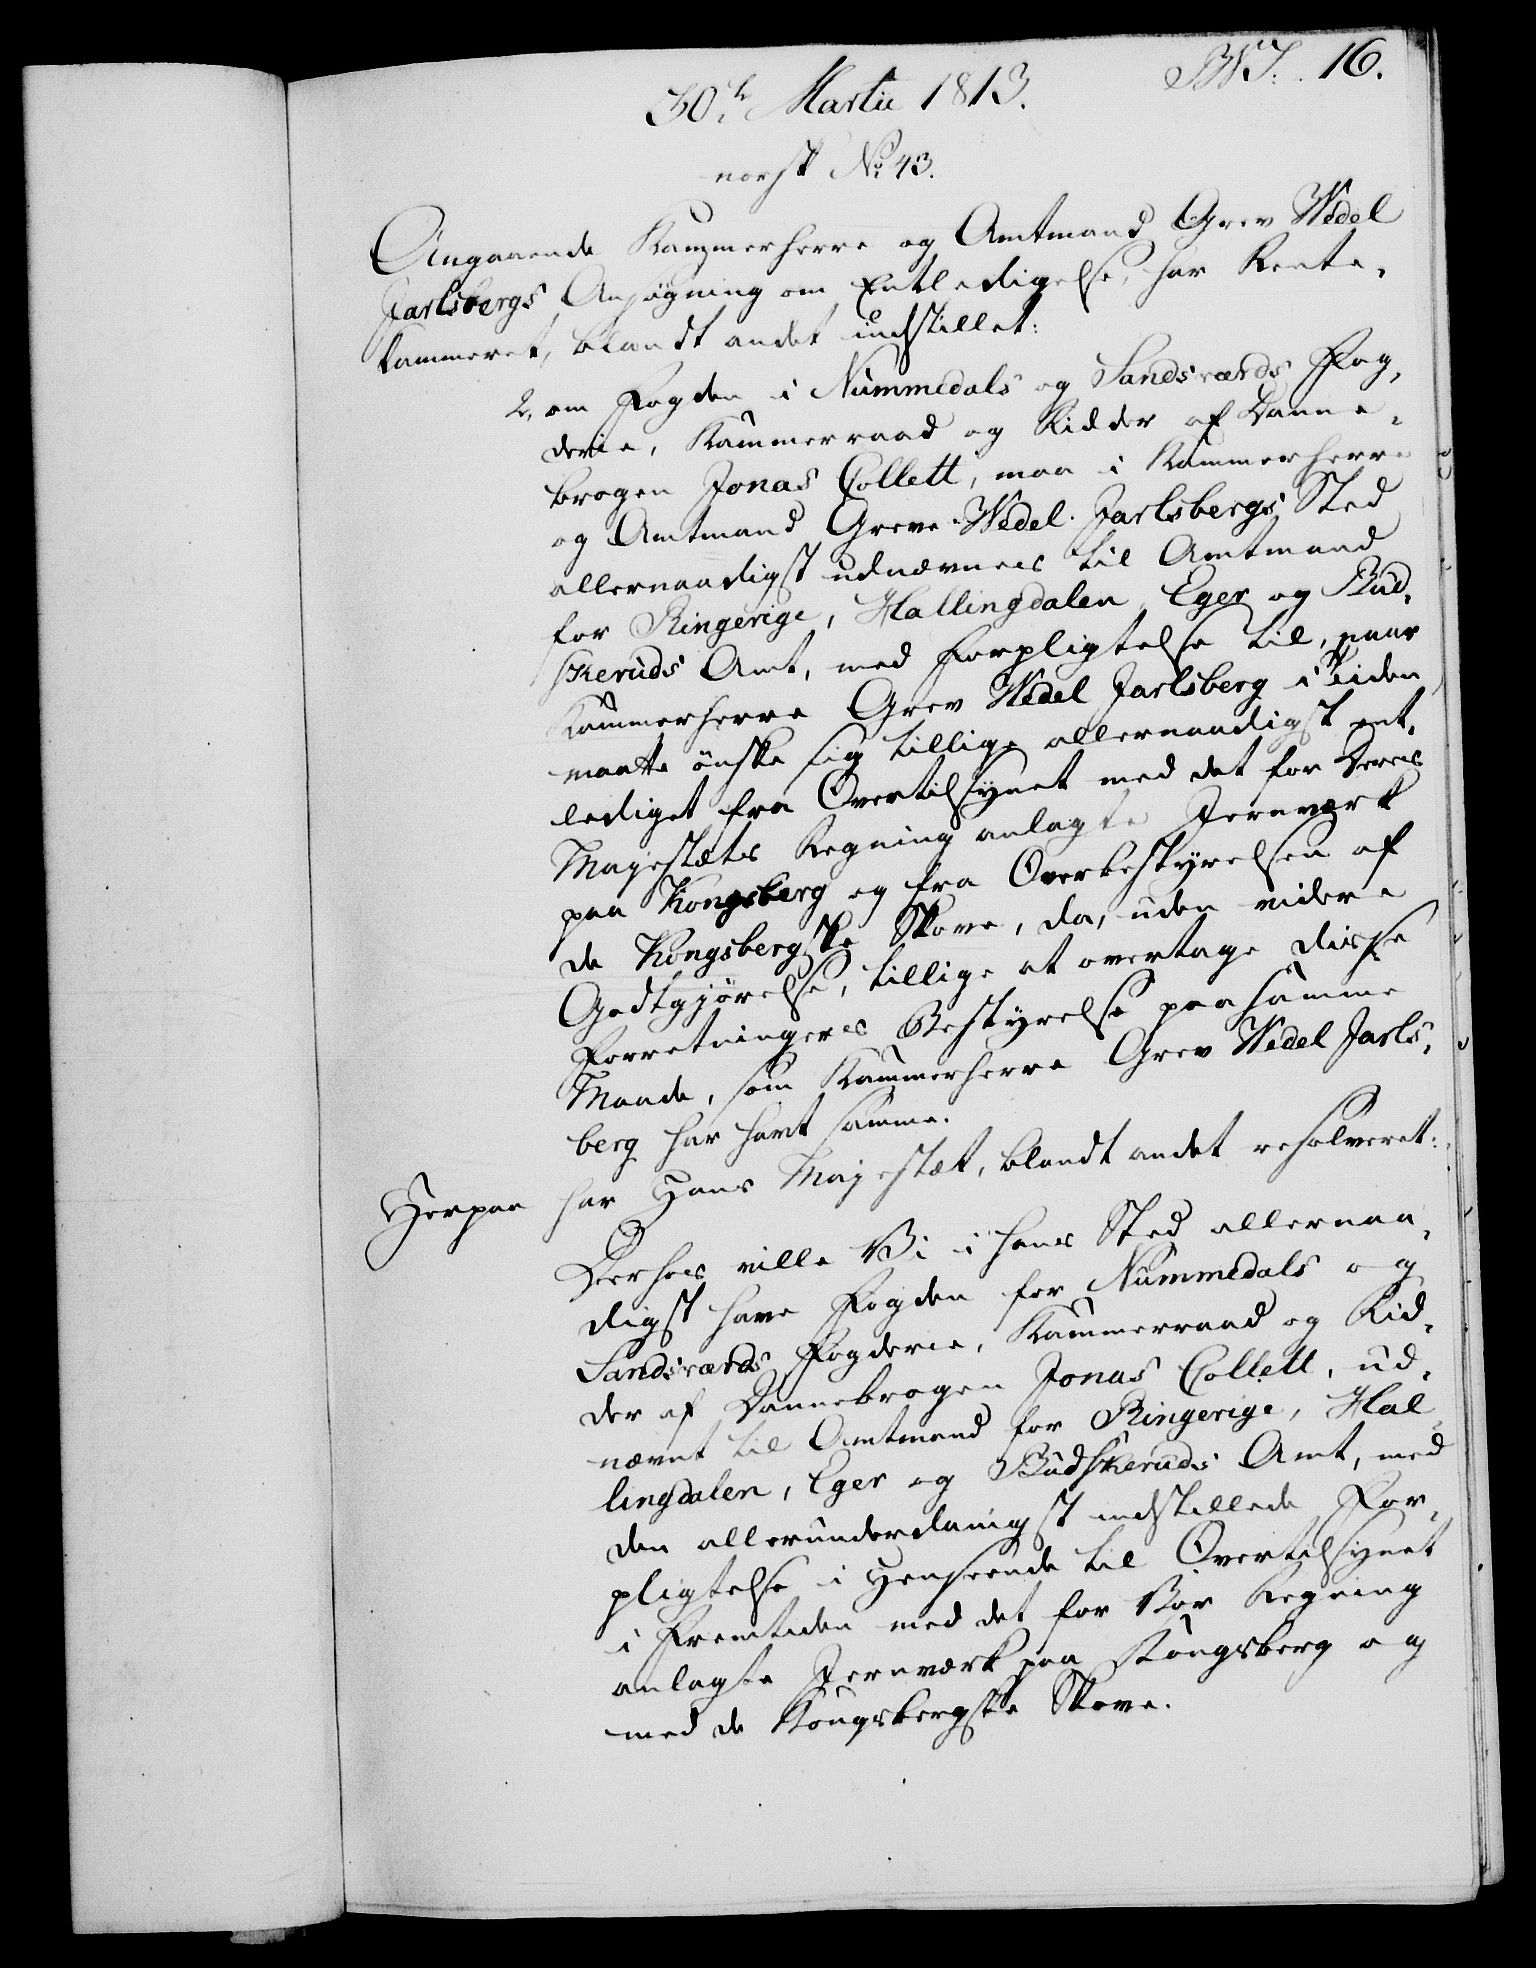 16.
30. Martii 1813.
norsk No 43.
Angaaende Kammerherre og Amtmand Grev Wedel
Jarlsbergs Ansøgning om Entledigelse, har Rente-
kammeret, blandt andet indstillet:
2, om Fogden i Nummedals og Sandsværds Fog-
derie, Kammerraad og Ridder af Danne-
brogen Jonas Collett, maa i Kammerherre
og Amtmand Greve Wedel Jarlsbergs Sted
allernaadigst udnævnes til Amtmand
for Ringerige, Hallingdalen, Eger og Bud-
skeruds Amt, med Forpligtelse til, naar
Kammerherre Grev Wedel Jarlsberg i Tiden
maatte ønske sig tillige allernaadigst ent-
lediget fra Overtilsynet med det for Deres
Majestæts Regning anlagte Jernværk
paa Kongsberg og fra Overbestyrelsen af
de Kongsbergske Skove, da, uden videre
Godtgjørelse, tillige at overtage disse
Forretningers Bestyrelse paa samme
Maade, som Kammerherre Grev Wedel Jarls-
berg har havt samme.
Herpaa har Hans Majestæt, blandt andet resolveret:
Derhos ville Vi i hans Sted allernaa-
digst have Fogden for Nummedals og
Sandsværds Fogderie, Kammerraad og Rid-
der af Dannebrogen Jonas Collett, ud-
nævnt til Amtmand for Ringerige, Hal-
lingdalen, Eger og Budskeruds Amt, med
den allerunderdanigst indstillede For-
pligtelse i Henseende til Overtilsynet
i Fremtiden med det for Vor Regning
anlagte Jernværk paa Kongsberg og
med de Kongsbergske Skove.